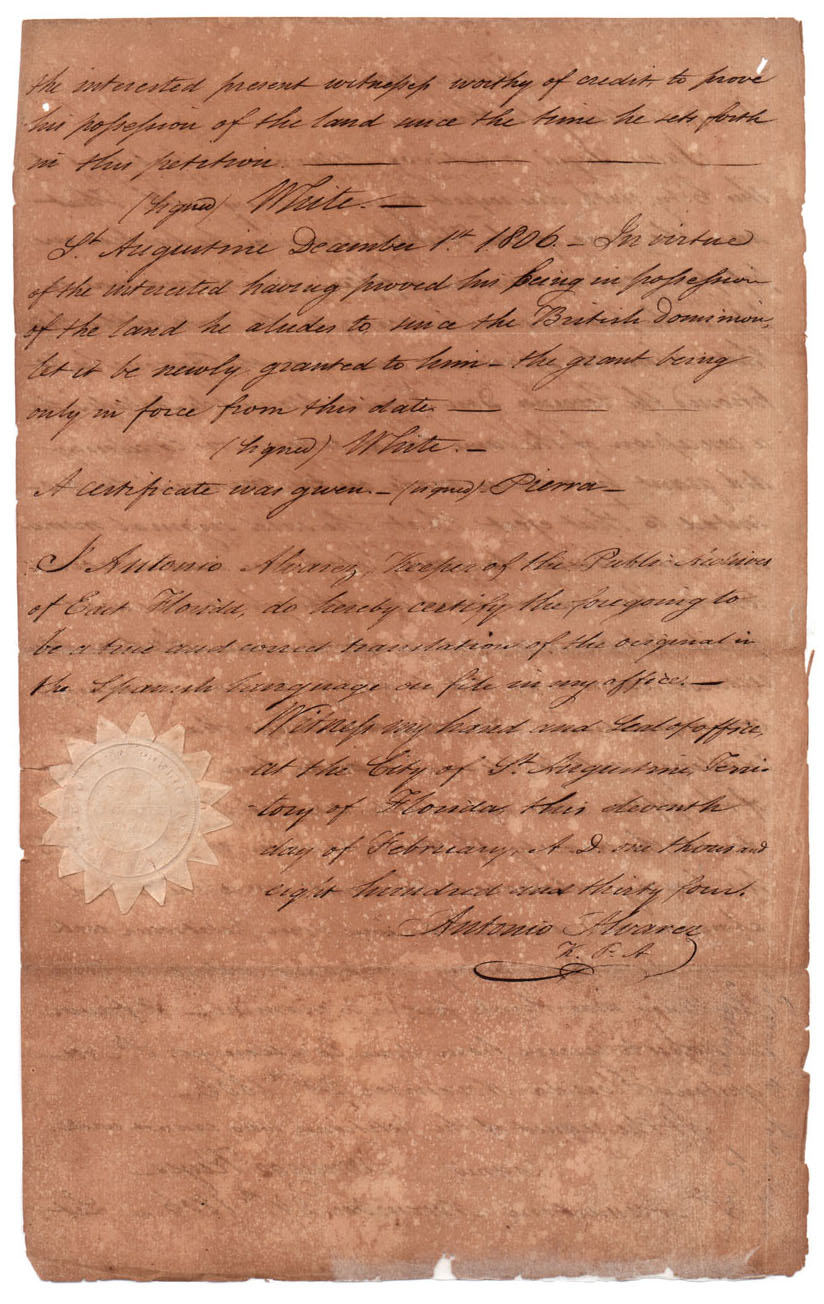 the interested present witnesses worthy of credit, to prove
his possession of the land since the time he sets forth
in this petition.
(Signed) White. —
St. Augustine December 1st. 1806. — In virtue
of the interested having proved his being in possession
of the land he aludes to, since the British Dominion,
let it be newly granted to him — the grant being
only in force from this date. —
(Signed) White. —
A certificate was given. — (signed) Pierra —
I Antonio Alvarez, Keeper of the Public Archives
of East Florida, do hereby certify the foregoing to
be a true and correct translation of the original in
the Spanish language on file in my office. —
Witness my hand and seal of office,
at the City of St. Augustine, Terri-
tory of Florida, this eleventh
day of February, A D. one thousand
eight hundred and thirty four.
Antonio Alvarez
K. P. A